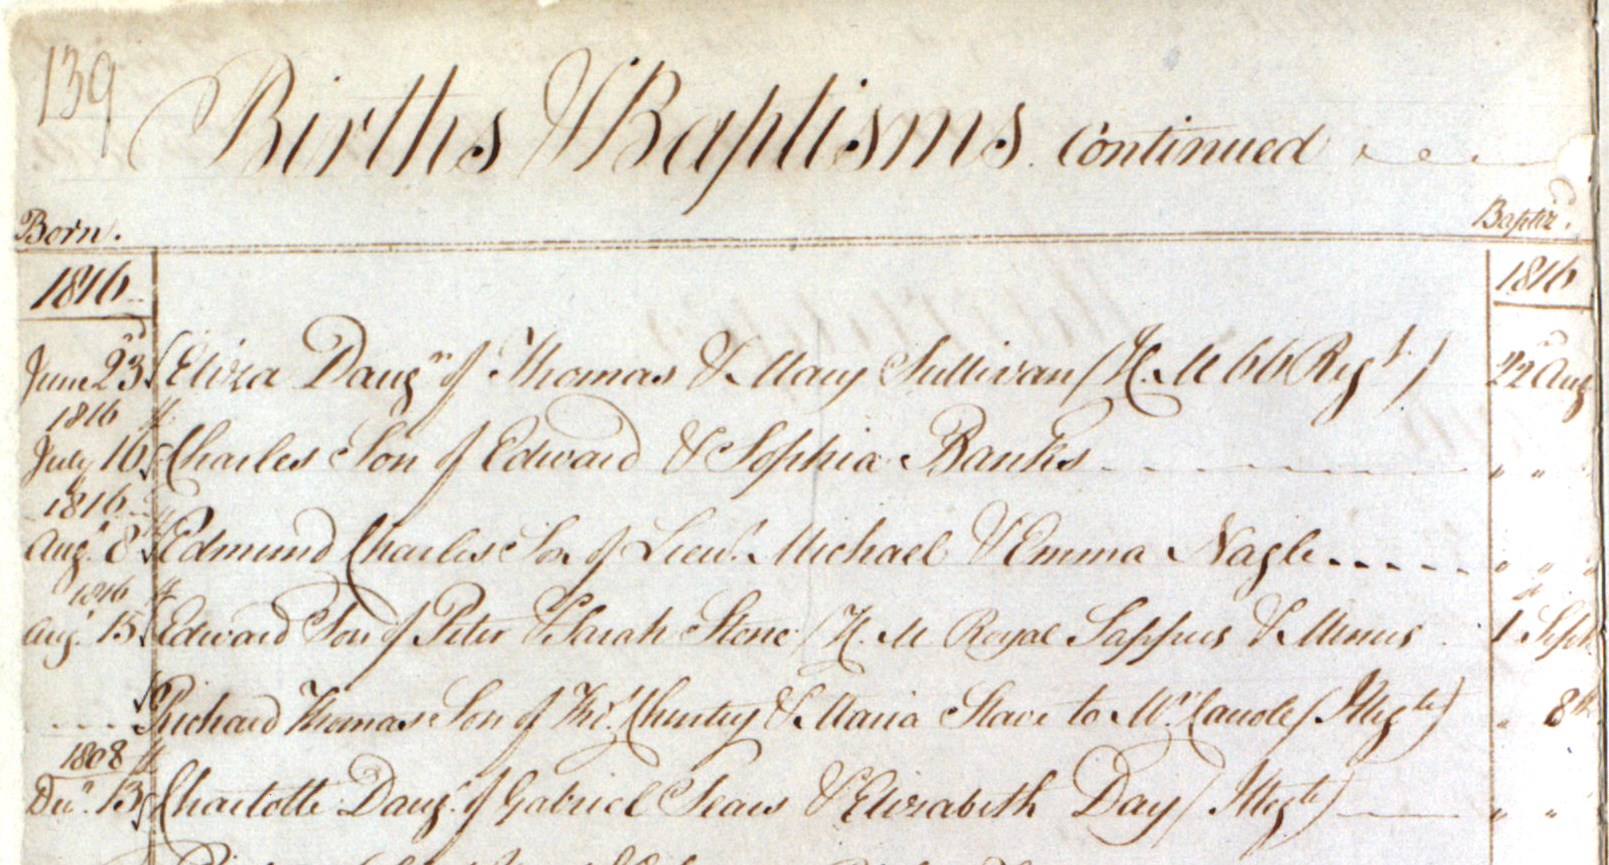 139
Births & Baptisms Continued
Born. Baptiz'd.
1816 1816
June 23d Eliza Daugr of Thomas & Mary Sullivan (H. M 66 Regt) 22d Aug
1816
July 16 Charles Son of Edward & Sophia Banks " "
1816
Augt 8 Edmund Charles Son of Lieut. Michael & Emma Nagle " " "
1816
Augt 15 Edward Son of Peter & Sarah Stone (H. M Royal Sappers & Miners 1st Sept
Richard Thomas Son of Thos. & Maria Slave to Mr (Illegte) " 8th
1808
Decr. 13 Charlotte Daugr. of Gabriel Sears & Elizabeth Day (Illegte) " "